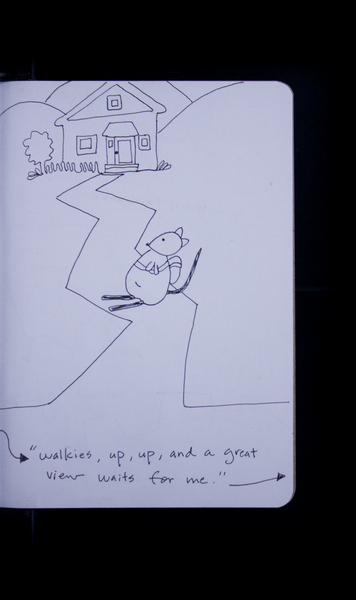 "walkies, up, up, and a great
view waits for me."